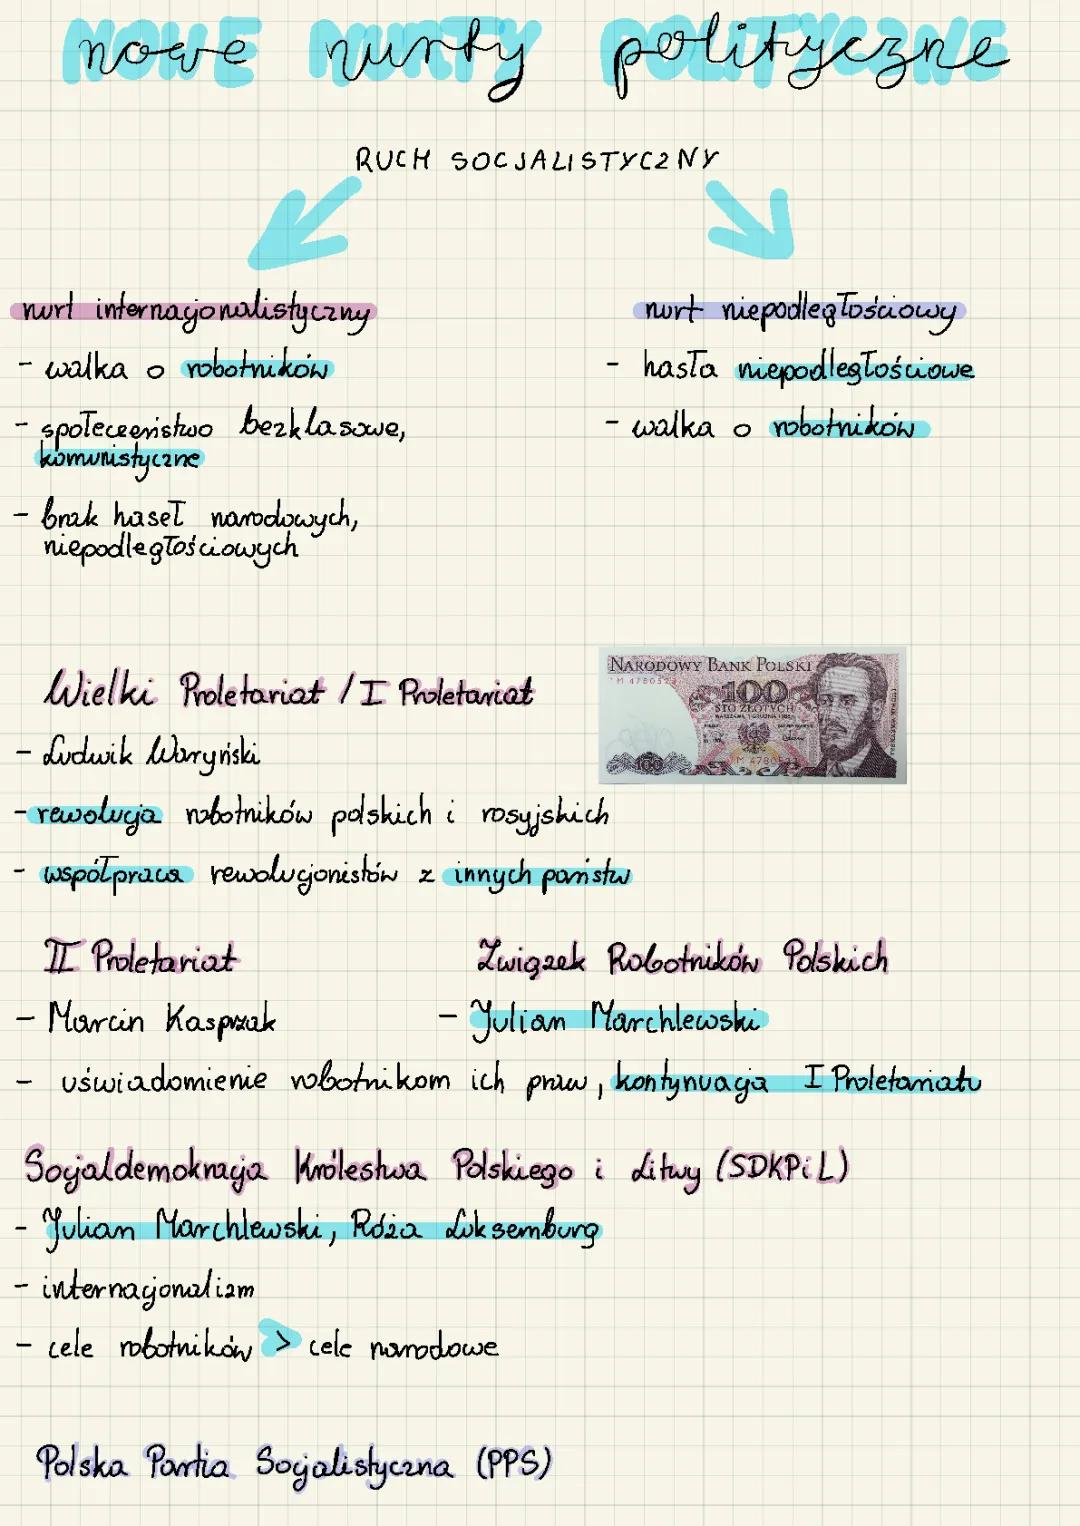 nowe nurty polityczne
RUCH SOCJALISTYCZNY
nurt internacjonalistyczny
- walka o robotników
- społeczeństwo bezklasowe,
komunistyczne
- brak haseł narodowych,
niepodległościowych
nurt niepodległościowy
- hasła niepodległościowe
- walka o robotników
Wielki Proletariat / I Proletariat
- Ludwik Waryński
- rewolucja robotników polskich i rosyjskich
- współpraca rewolucjonistów z innych państw
NARODOWY BANK POLSKI
100
STO ZŁOTYCH
100
II Proletariat
- Marcin Kasprzak
Związek Robotników Polskich
- Julian Marchlewski
- uświadomienie robotnikom ich praw, kontynuacja I Proletariatu
Socjaldemokracja Królestwa Polskiego i Litwy (SDKPiL)
- Julian Marchlewski, Róża Luksemburg
- internacjonalizm
- cele robotników > cele narodowe
Polska Partia Socjalistyczna (PPS)